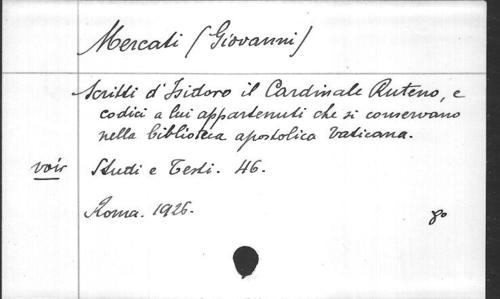 Mercati (Giovanni)
Scritti d'Isidoro il Cardinale Ruteno, e
codici a lui appartenuti che si conservano
nella biblioteca apostolica Vaticana.
voir Studi e Testi. 46.
Roma. 1926. 8o